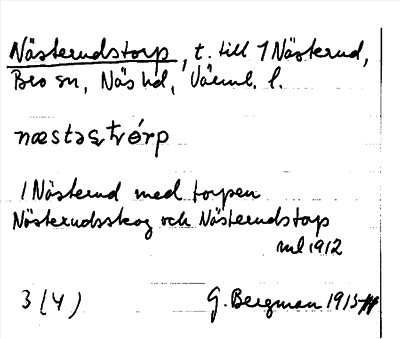 Nästerudstorp, t. till 1 Nästerud,
Bro sn, Näs hd, Värml. l.
næstəstórp
1 Nästerud med torpen
Nästerudsskog och Nästerudstorp
ml 1912
3 (4)
G. Bergman 1915